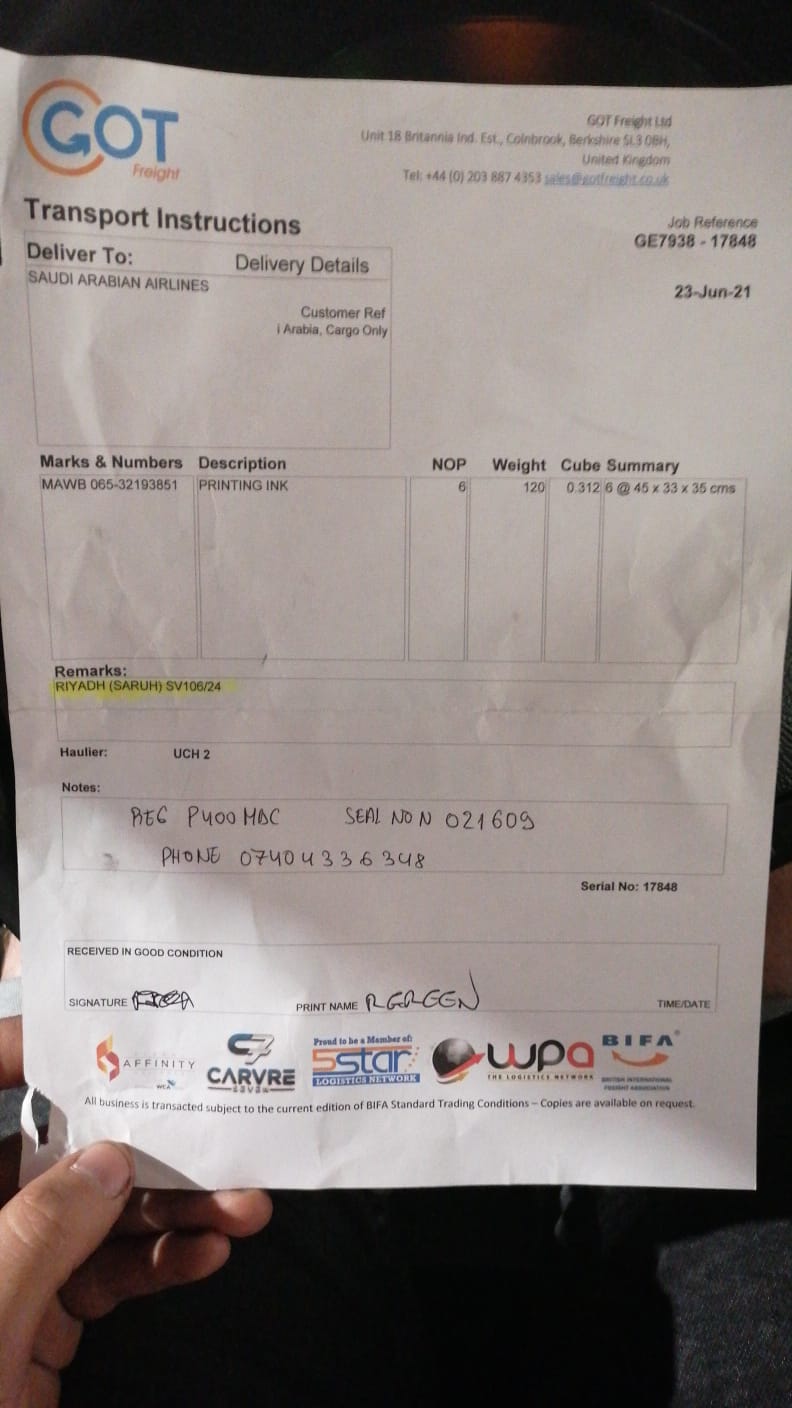 GOT
Freight
GOT Freight Ltd
Unit 18 Britannia Ind. Est., Colnbrook, Berkshire SL3 0BH,
United Kingdom
Tel: +44 (0) 203 887 4353 sales@gotfreight.co.uk
Transport Instructions
Job Reference
GE7938 - 17848
23-Jun-21
Deliver To: Delivery Details
SAUDI ARABIAN AIRLINES
Customer Ref
i Arabia, Cargo Only
Marks & Numbers Description NOP Weight Cube Summary
MAWB 065-32193851 PRINTING INK 6 120 0.312 6 @ 45 x 33 x 35 cms
Remarks:
RIYADH (SARUH) SV106/24
Haulier: UCH 2
Notes:
REG P400 MDC SEAL NO N 021609
PHONE 07404336348
Serial No: 17848
RECEIVED IN GOOD CONDITION
SIGNATURE PRINT NAME R GREEN TIME/DATE
AFFINITY
WCA
CARVRE
Proud to be a Member of:
5star
LOGISTICS NETWORK
wpa
THE LOGISTICS NETWORK
BIFA
BRITISH INTERNATIONAL
FREIGHT ASSOCIATION
All business is transacted subject to the current edition of BIFA Standard Trading Conditions – Copies are available on request.